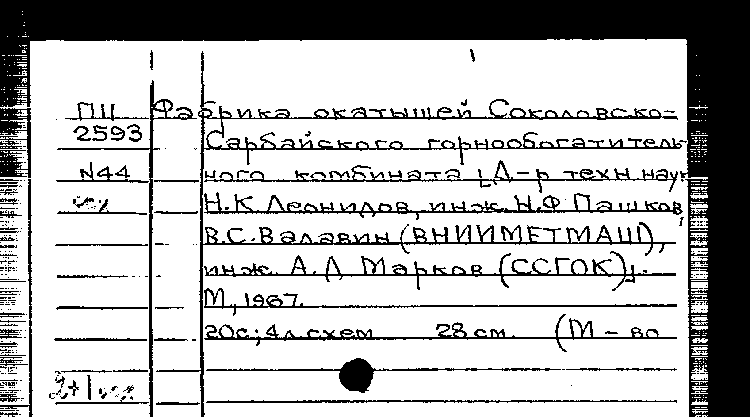 ПЦ Фабрика окатышей Соколовско=
2593 Сарбайского горнообогатитель-
N44 ного комбината [Д-р техн. наук
Н.К Леонидов, инж. Н.Ф Пашков,
В.С. Валавин (ВНИИМЕТМАШ),
инж. А.Д Марков (ССГОК)].
М., 1967.
20с; 4л схем 28 см. (М-во